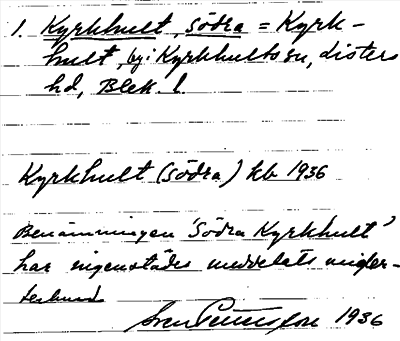 1. Kyrkhult, södra = Kyrk-
hult, by i Kyrkhults sn, Listers
hd, Blek. l.
Kyrkhult (södra) kb 1936
Benämningen 'Södra Kyrkhult'
har ingenstädes meddelats under-
tecknad
Sven Petersson 1936